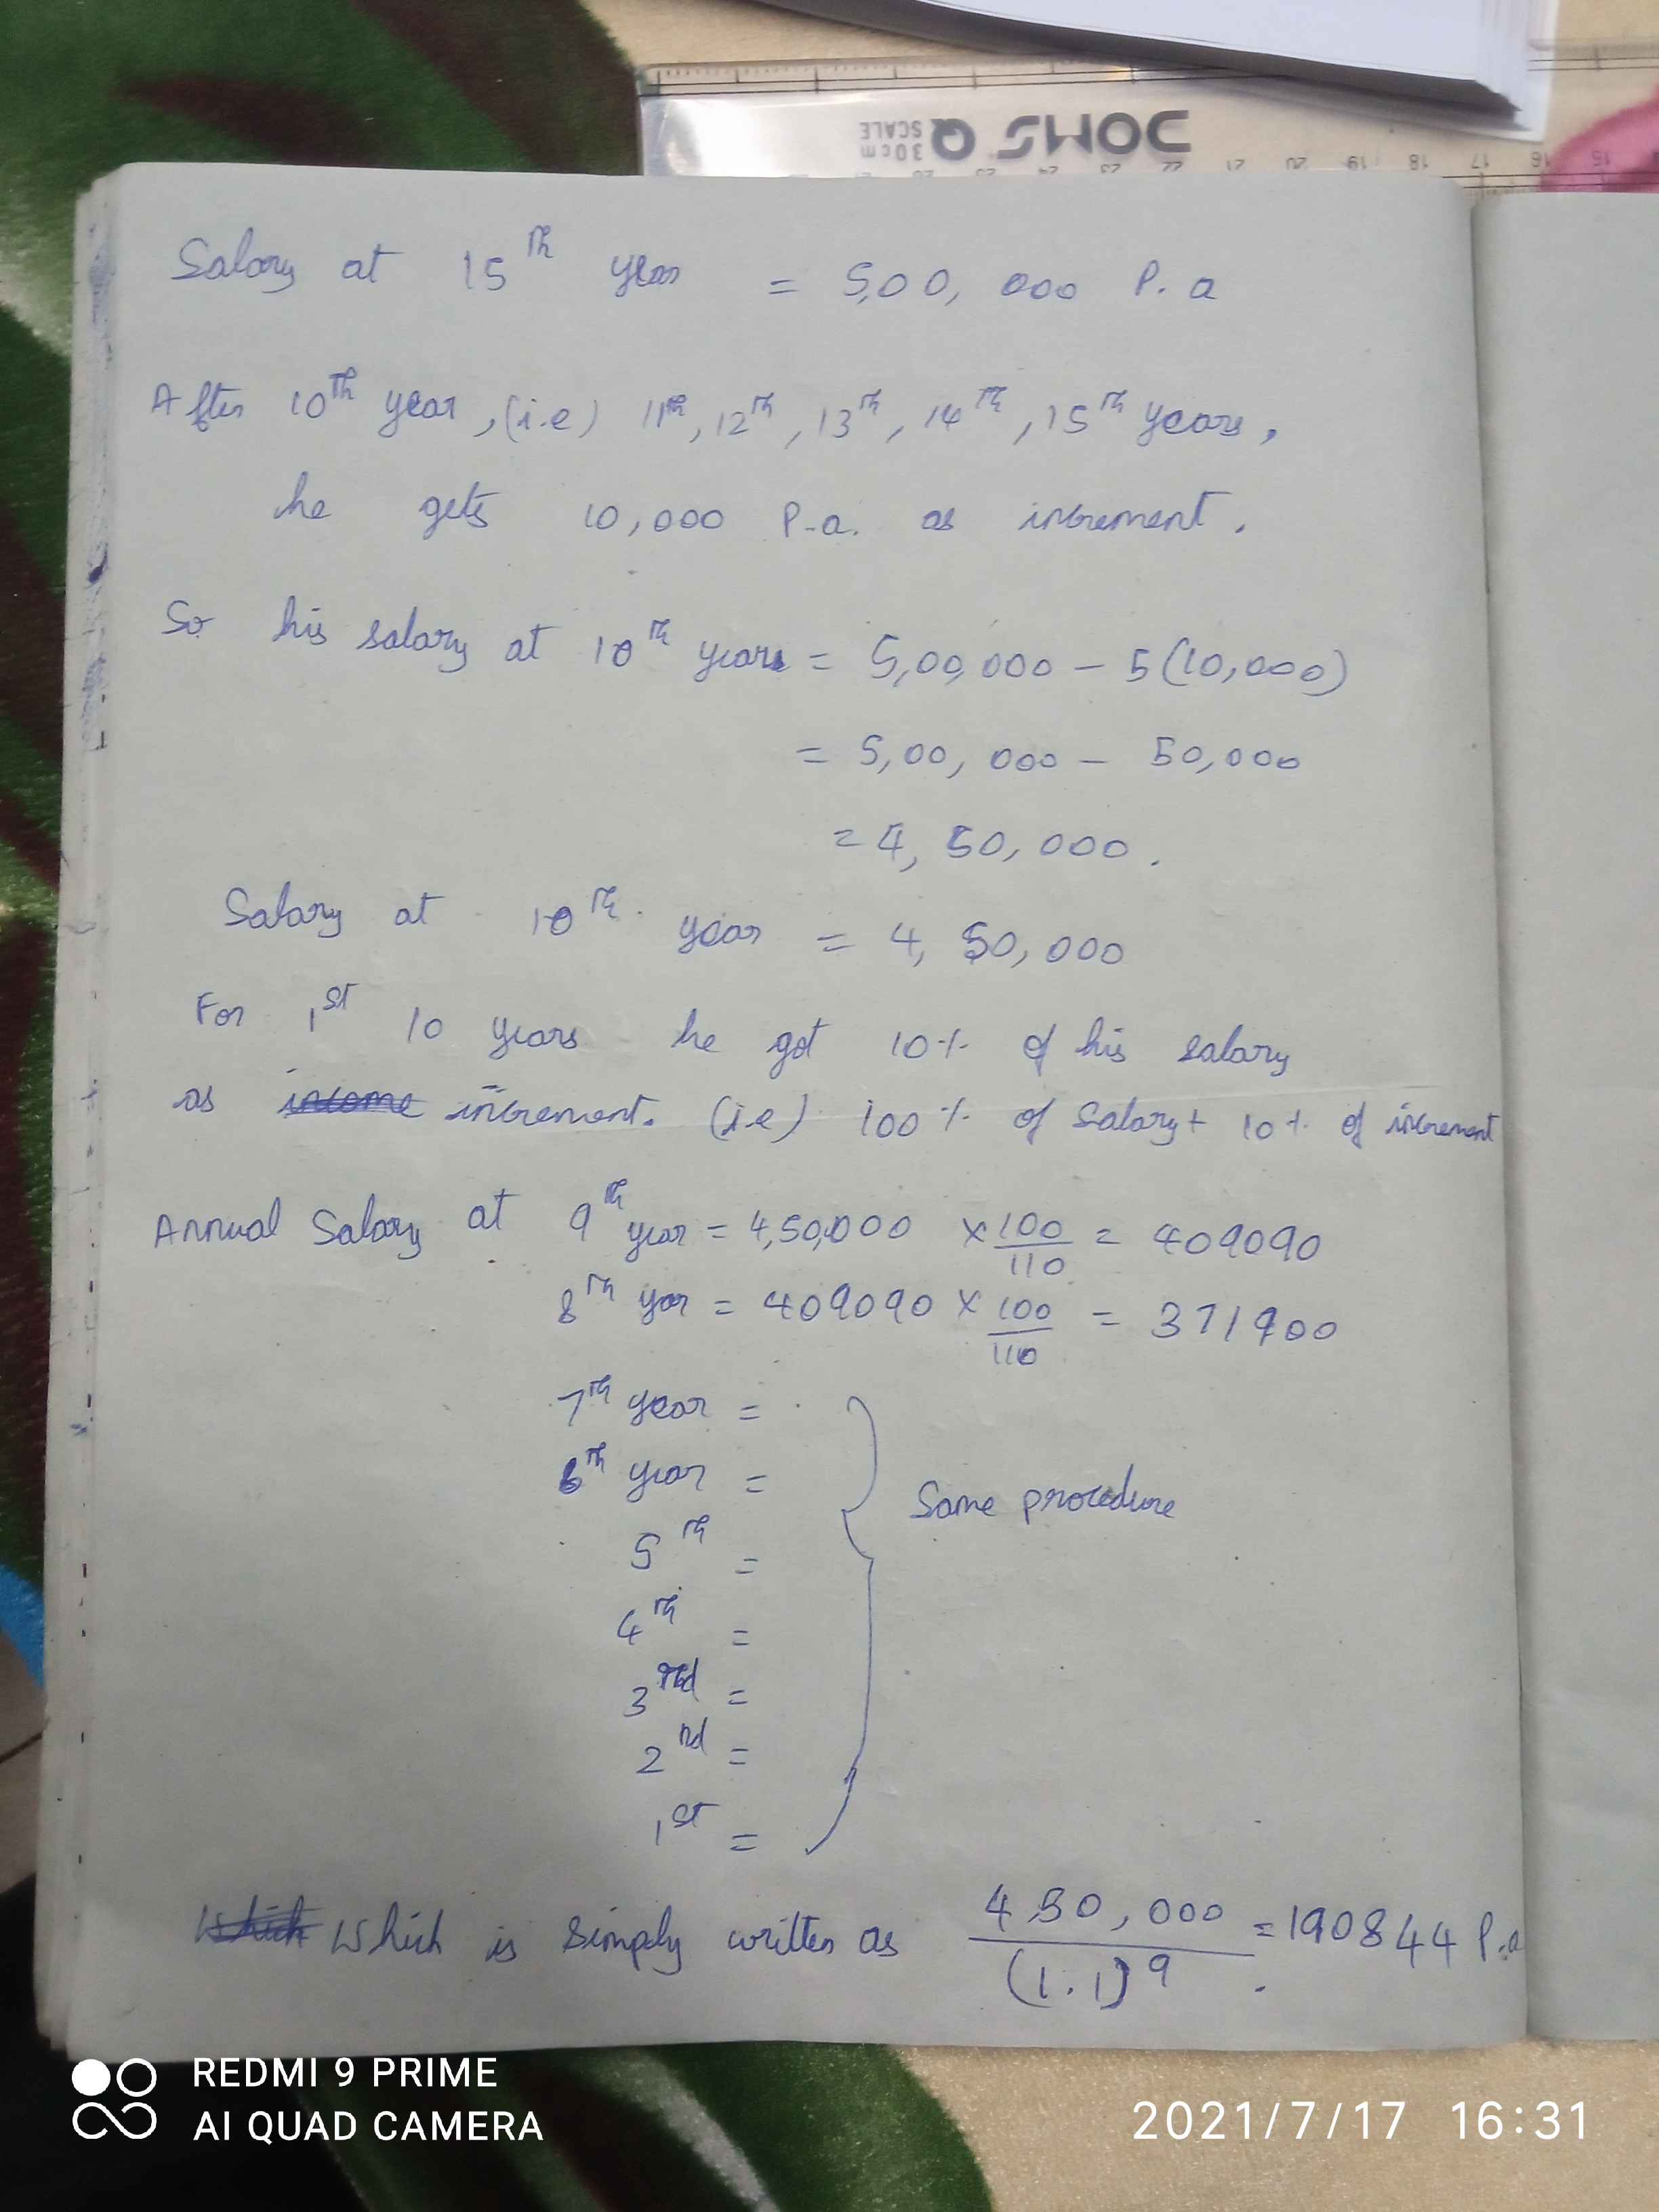 DOMS Q
SCALE
30cm
15 16 17 18 19 20 21 22 23 24 25
Salary at 15th year = 5,00,000 P.a
After 10th year, (i.e) 11th, 12th, 13th, 14th, 15th years,
he gets 10,000 P.a. as increment.
So his salary at 10th years = 5,00,000 - 5(10,000)
= 5,00,000 - 50,000
= 4,50,000.
Salary at 10th year = 4,50,000
For 1st 10 years he got 10% of his salary
as increment. (i.e) 100% of salary + 10% of increment
Annual Salary at 9th year = 4,50,000 × 100/110 = 409090
8th year = 409090 × 100/110 = 371900
7th year =
6th year =
5th =
4th =
3rd =
2nd =
1st =
Same procedure
Which is simply written as 450,000/(1.1)^9 = 190844 P.a
REDMI 9 PRIME
AI QUAD CAMERA
2021/7/17 16:31